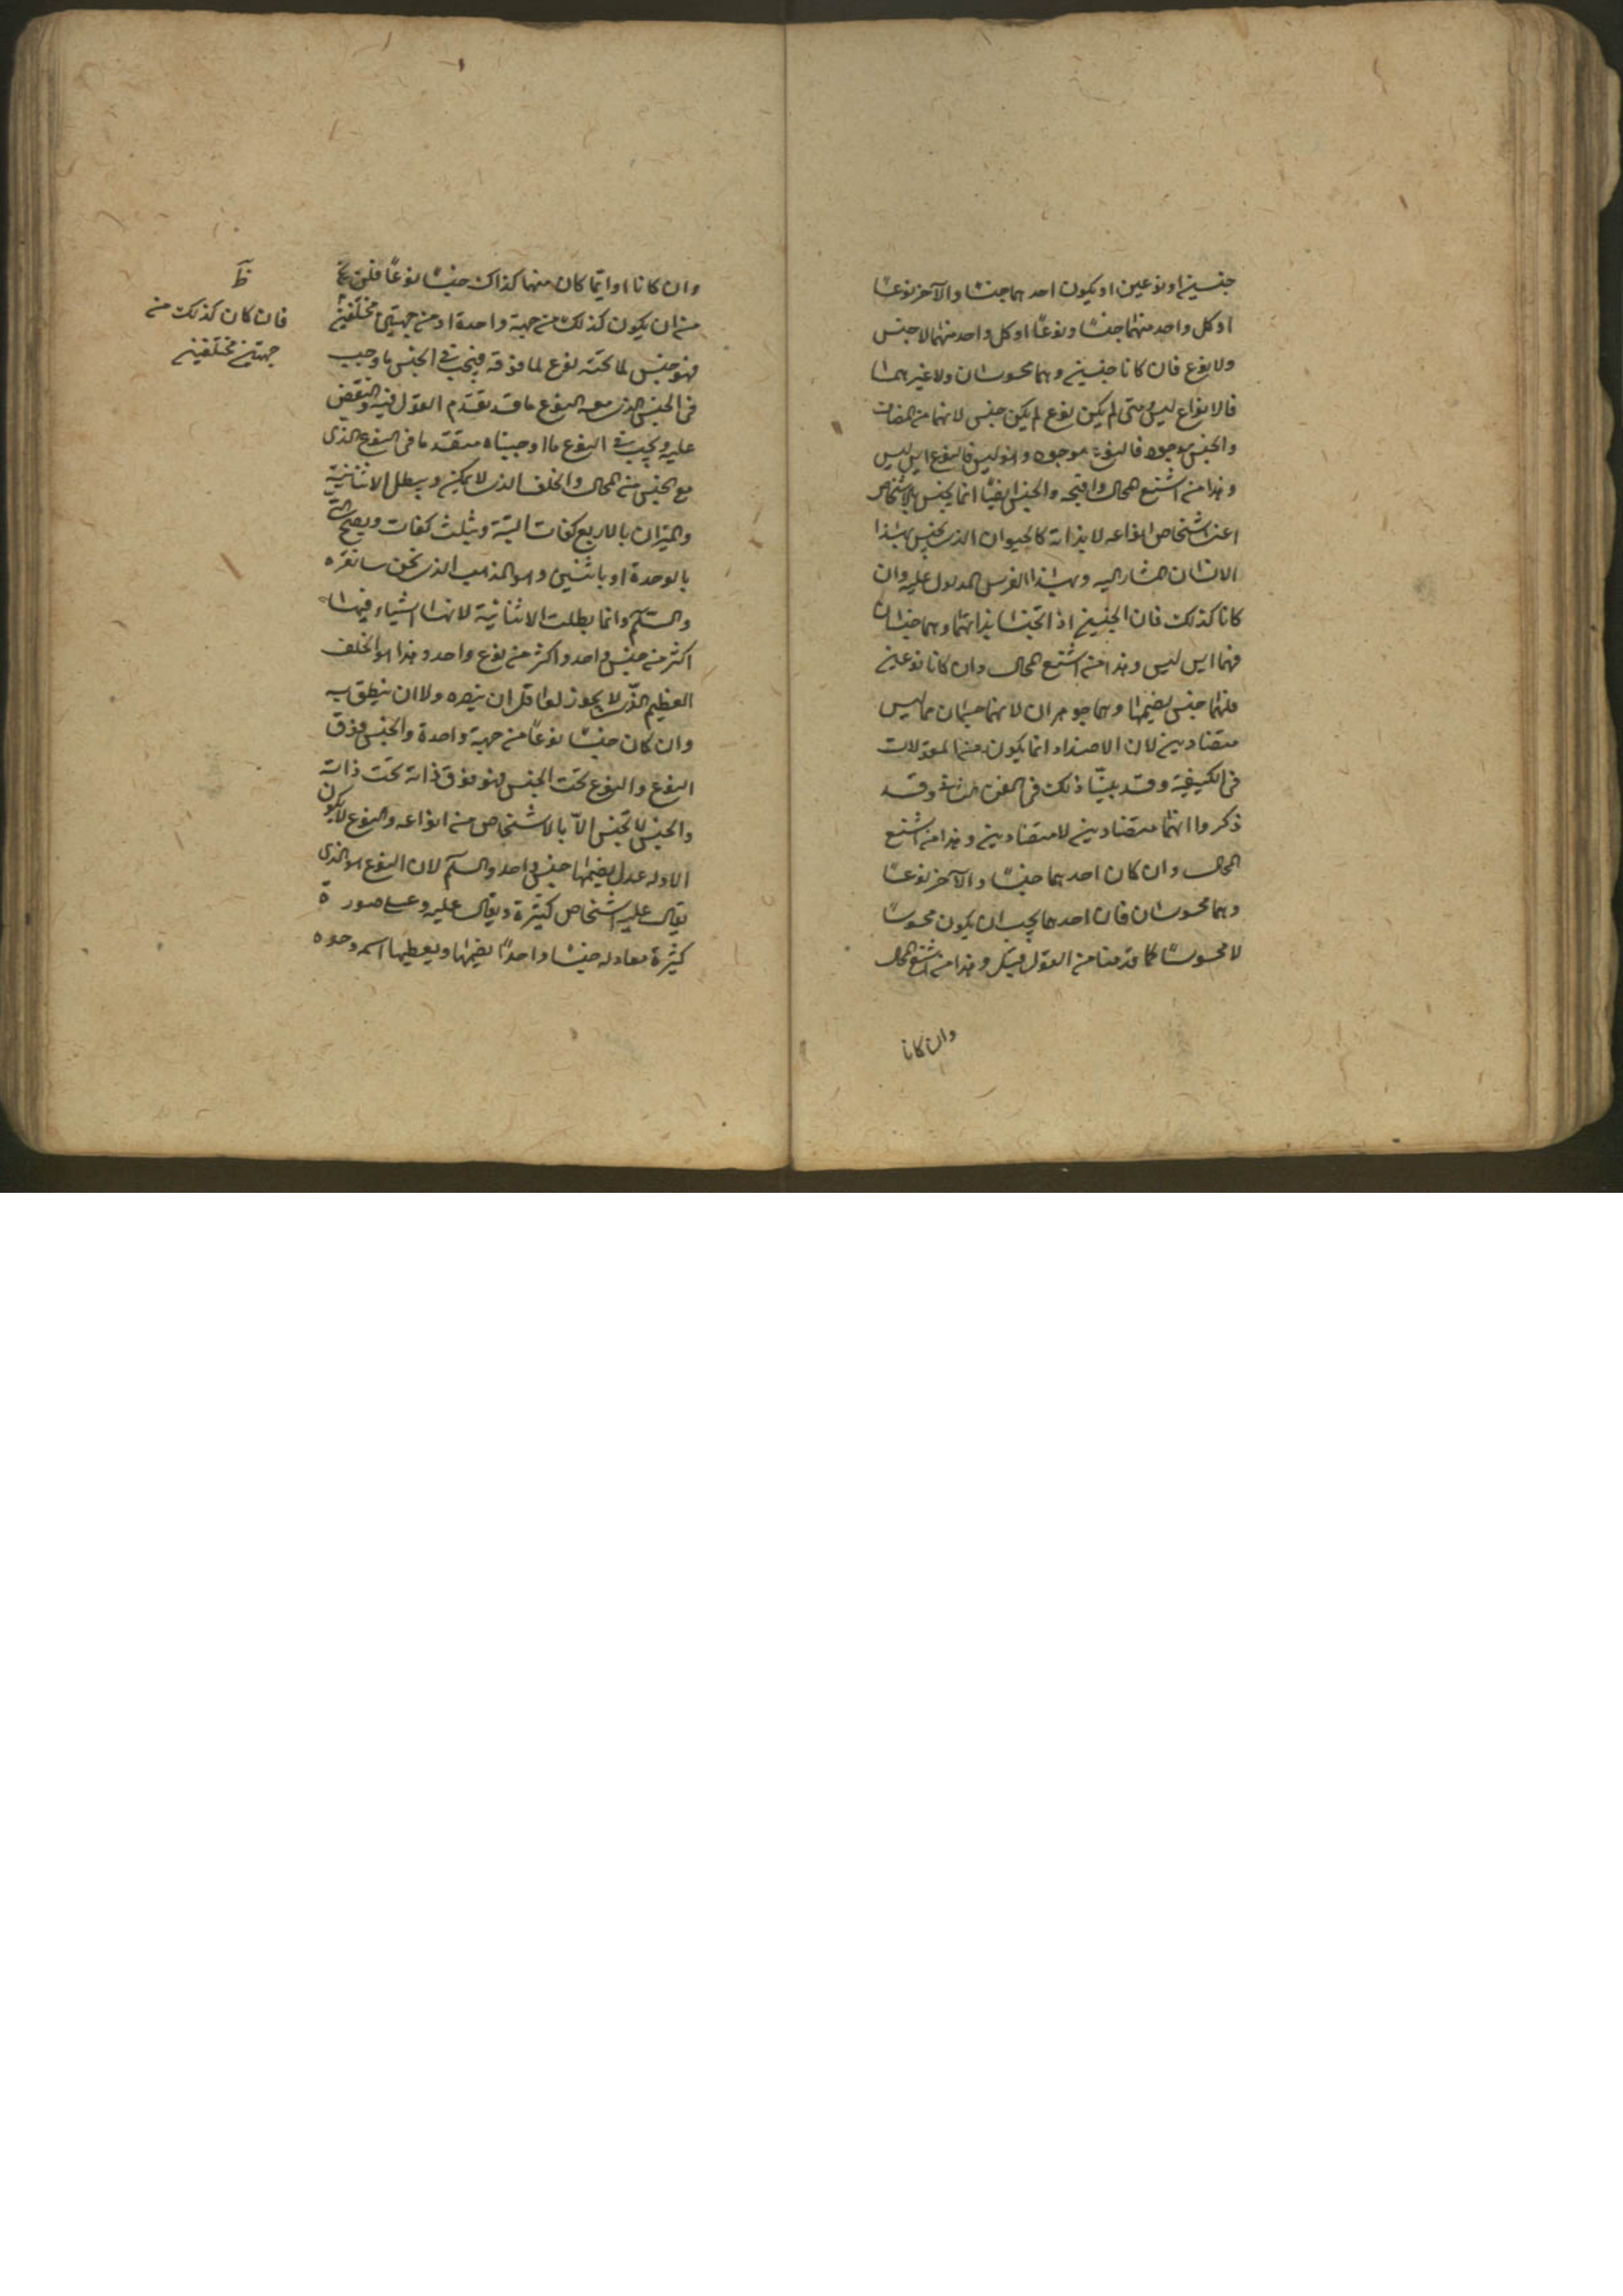 جنسين او نوعين او يكون احدهما جنسًا والآخر نوعًا
او كل واحد منهما جنسًا ونوعًا او كل واحد منهما لا جنس
ولا نوع فان كانا جنسين وهما محسوسان ولا غيرهما
فالانواع ليس متى لم يكن نوع لم يكن جنس لانهما من المضاف
والجنس موجود فالنوع موجود والنوع ليس فالنوع ايس ليس
وهذا من اشنع المحال واقبحه والجنس ايضًا انما يجنس بالاشخاص
اعنى اشخاص انواعه لا بذاته كالحيوان الذى يجنس بهذا
الانسان المشار اليه وبهذا الفرس المدلول عليه وان
كانا كذلك فان الجنسين اذا تجنسا بذاتهما وهما جنسان
فهما ايس ليس وهذا من اشنع المحال وان كانا نوعين
فلهما جنس يضمهما وهما جوهران لانهما جسمان فما ليس
متضادين لان الاضداد انما يكون من المقولات
فى الكيفية وقد بينّا ذلك فى الفن الثانى وقد
ذكروا انهما متضادين لا متضادين وهذا من اشنع
المحال وان كان احدهما جنسًا والآخر نوعًا
وهما محسوسان فان احدهما يجب ان يكون محسوسًا
لا محسوسًا كما قدمنا من القول قبل وهذا من اشنع المحال
وان كانا
وان كانا او ايّما كان منهما كذاك جنسًا نوعًا فلن يخ
من ان يكون كذلك من جهة واحدة او من جهتين مختلفين
فهو جنس لما تحته نوع لما فوقه فيجب فى الجنس ما وجب
فى الجنس الذى معه النوع ما قد تقدّم القول فيه والنقض
عليه ويجب فى النوع ما اوجبناه متقدما فى النوع الذى
مع الجنس من المحال والخلف الذى لا يمكن ويبطل الاثنانية
والميزان بالاربع كفات البتة وبثلث كفات ويصح
بالوحدة او باثنين وهو المذهب الذى نحن سائقوه
والسلم وانما بطلت الاثنانية لانها اشياء فيها
اكثر من جنس واحد واكثر من نوع واحد وهذا هو الخلف
العظيم الذى لا يجوز لعاقل ان يتصوره ولا ان ينطق به
وان كان جنسًا نوعًا من جهة واحدة والجنس فوق
النوع والنوع تحت الجنس فهو فوق ذاته تحت ذاته
والجنس لا تجنس الاّ بالاشخاص من انواعه والنوع لا يكون
الا وله عدل يضمها جنس واحد والسلم لان النوع هو الذى
يقال عليه اشخاص كثيرة ويقال عليه وعلى صورة
كثيرة معادله جنسًا واحدًا يضمها ويعطيها اسمه وحده
ظ
فان كان كذلك من
جهتين مختلفين